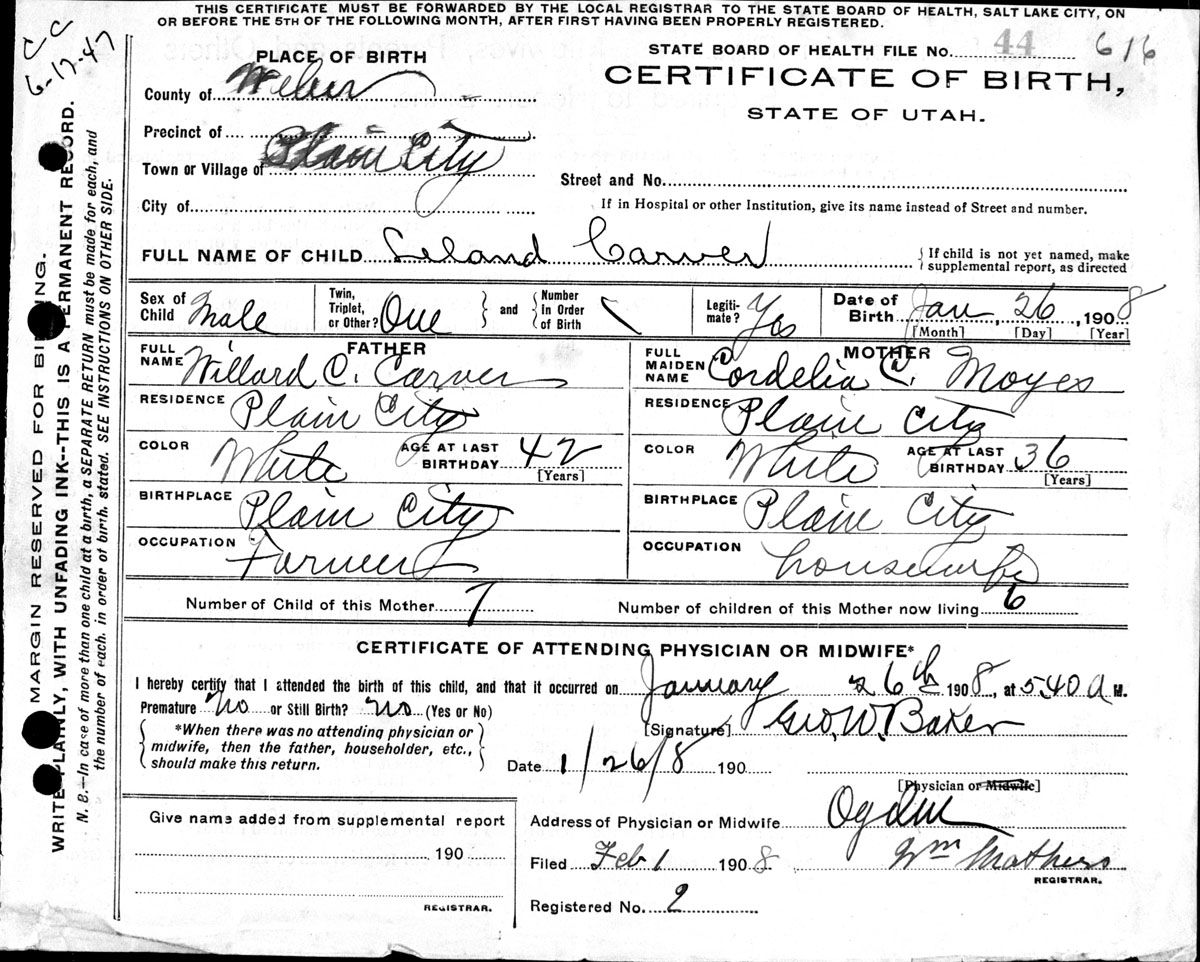 THIS CERTIFICATE MUST BE FORWARDED BY THE LOCAL REGISTRAR TO THE STATE BOARD OF HEALTH, SALT LAKE CITY, ON
OR BEFORE THE 5TH OF THE FOLLOWING MONTH, AFTER FIRST HAVING BEEN PROPERLY REGISTERED.
CC
6-17-47
STATE BOARD OF HEALTH FILE No. 44 616
PLACE OF BIRTH
CERTIFICATE OF BIRTH,
STATE OF UTAH.
County of Weber
Precinct of
Town or Village of Plain City
Street and No.
City of
If in Hospital or other Institution, give its name instead of Street and number.
FULL NAME OF CHILD Leland Carver
{If child is not yet named, make
supplemental report, as directed
Sex of Child Male
Twin, Triplet, or Other? One } and { Number In Order of Birth
Legiti-mate? Yes
Date of Birth Jan 26, 1908
[Month] [Day] [Year]
FATHER
FULL NAME Willard C. Carver
RESIDENCE Plain City
COLOR White AGE AT LAST BIRTHDAY 42
[Years]
BIRTHPLACE Plain City
OCCUPATION Farmer
MOTHER
FULL MAIDEN NAME Cordelia C. Moyes
RESIDENCE Plain City
COLOR White AGE AT LAST BIRTHDAY 36
[Years]
BIRTHPLACE Plain City
OCCUPATION housewife
Number of Child of this Mother 7
Number of children of this Mother now living 6
CERTIFICATE OF ATTENDING PHYSICIAN OR MIDWIFE*
I hereby certify that I attended the birth of this child, and that it occurred on January 26th 1908, at 540 a M.
Premature No or Still Birth? No (Yes or No)
[Signature] Geo. W. Baker
{ *When there was no attending physician or
midwife, then the father, householder, etc.,
should make this return. }
Date 1/26/8 190
[Physician or Midwife]
Give name added from supplemental report
190
REGISTRAR.
Address of Physician or Midwife Ogden
Filed Feb 1 1908 Wm Mathers
REGISTRAR.
Registered No. 2
MARGIN RESERVED FOR BINDING.
WRITE PLAINLY, WITH UNFADING INK--THIS IS A PERMANENT RECORD.
N. B.—In case of more than one child at a birth, a SEPARATE RETURN must be made for each, and
the number of each, in order of birth, stated. SEE INSTRUCTIONS ON OTHER SIDE.